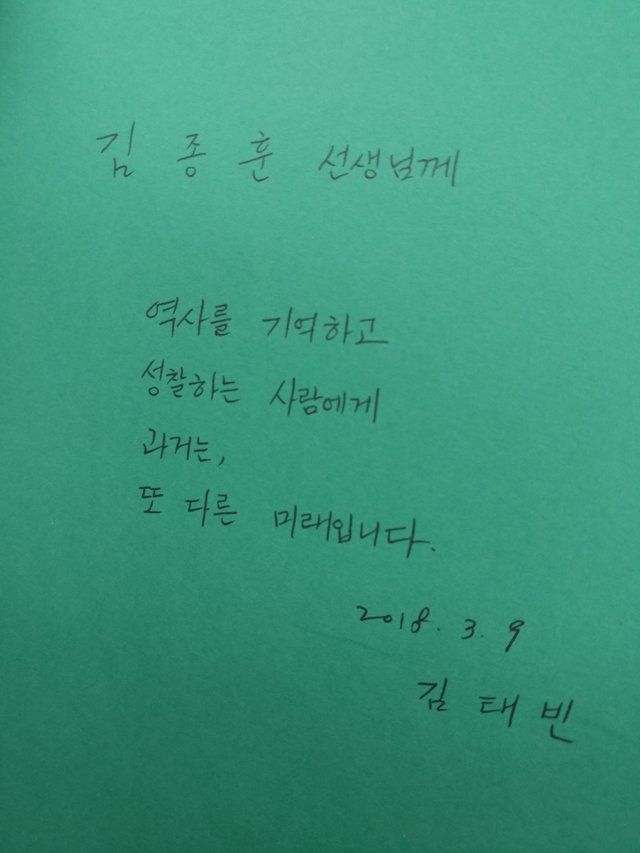 김 종 훈 선생님께
역사를 기억하고
성찰하는 사람에게
과거는,
또 다른 미래입니다.
2018. 3. 9
김 태 빈